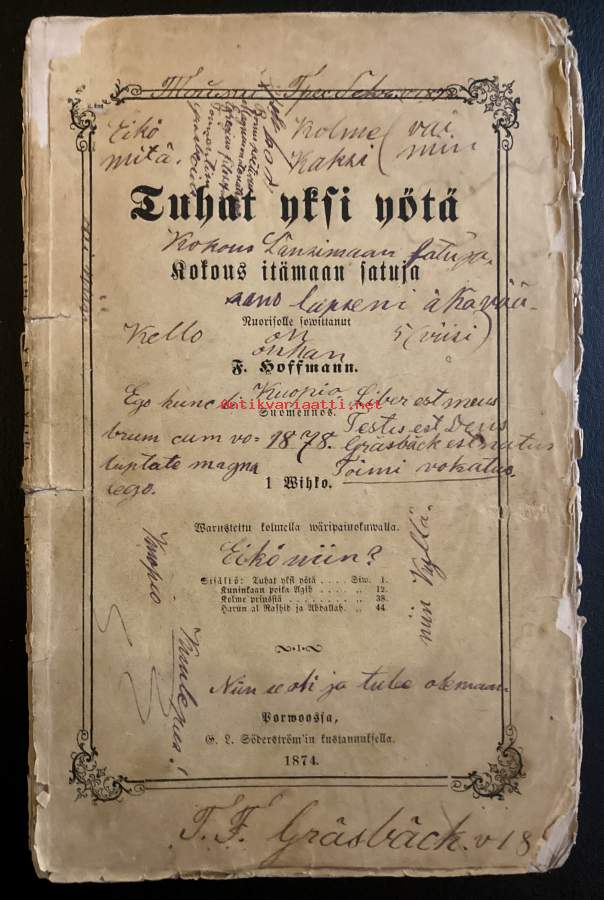 Eikö Kolme vai
mitä. Kaksi niin
Tuhat yksi yötä
Kokous Länsimaan satuja.
Kokous itämaan satuja
sano lapseni
Nuorisolle sowittanut
Kello on 5 (viisi)
onhan
F. Hoffmann.
Kuopio
antikvariaatti.net
Ego hunc Liber est meus
Suomennos.
Testis est Deus
brum cum vo= 1878. Gräsbäck est natus
luptate magna Toimi vokatus.
lego.
1 Wihko.
Warustettu kolmella wäripainokuwalla.
Eikö niin?
niin Kyllä.
Kuopio
Sisältö: Tuhat yksi yötä . . . . Siw. 1.
Kuninkaan poika Agib . . . . „ 12.
Kolme prinssiä . . . . . . . . „ 38.
Harun al Rashid ja Abdallah. „ 44.
Niin se oli ja tulee olemaan.
Porwoossa,
G. L. Söderström'in kustannuksella.
1874.
T. F. Gräsbäck. v 18